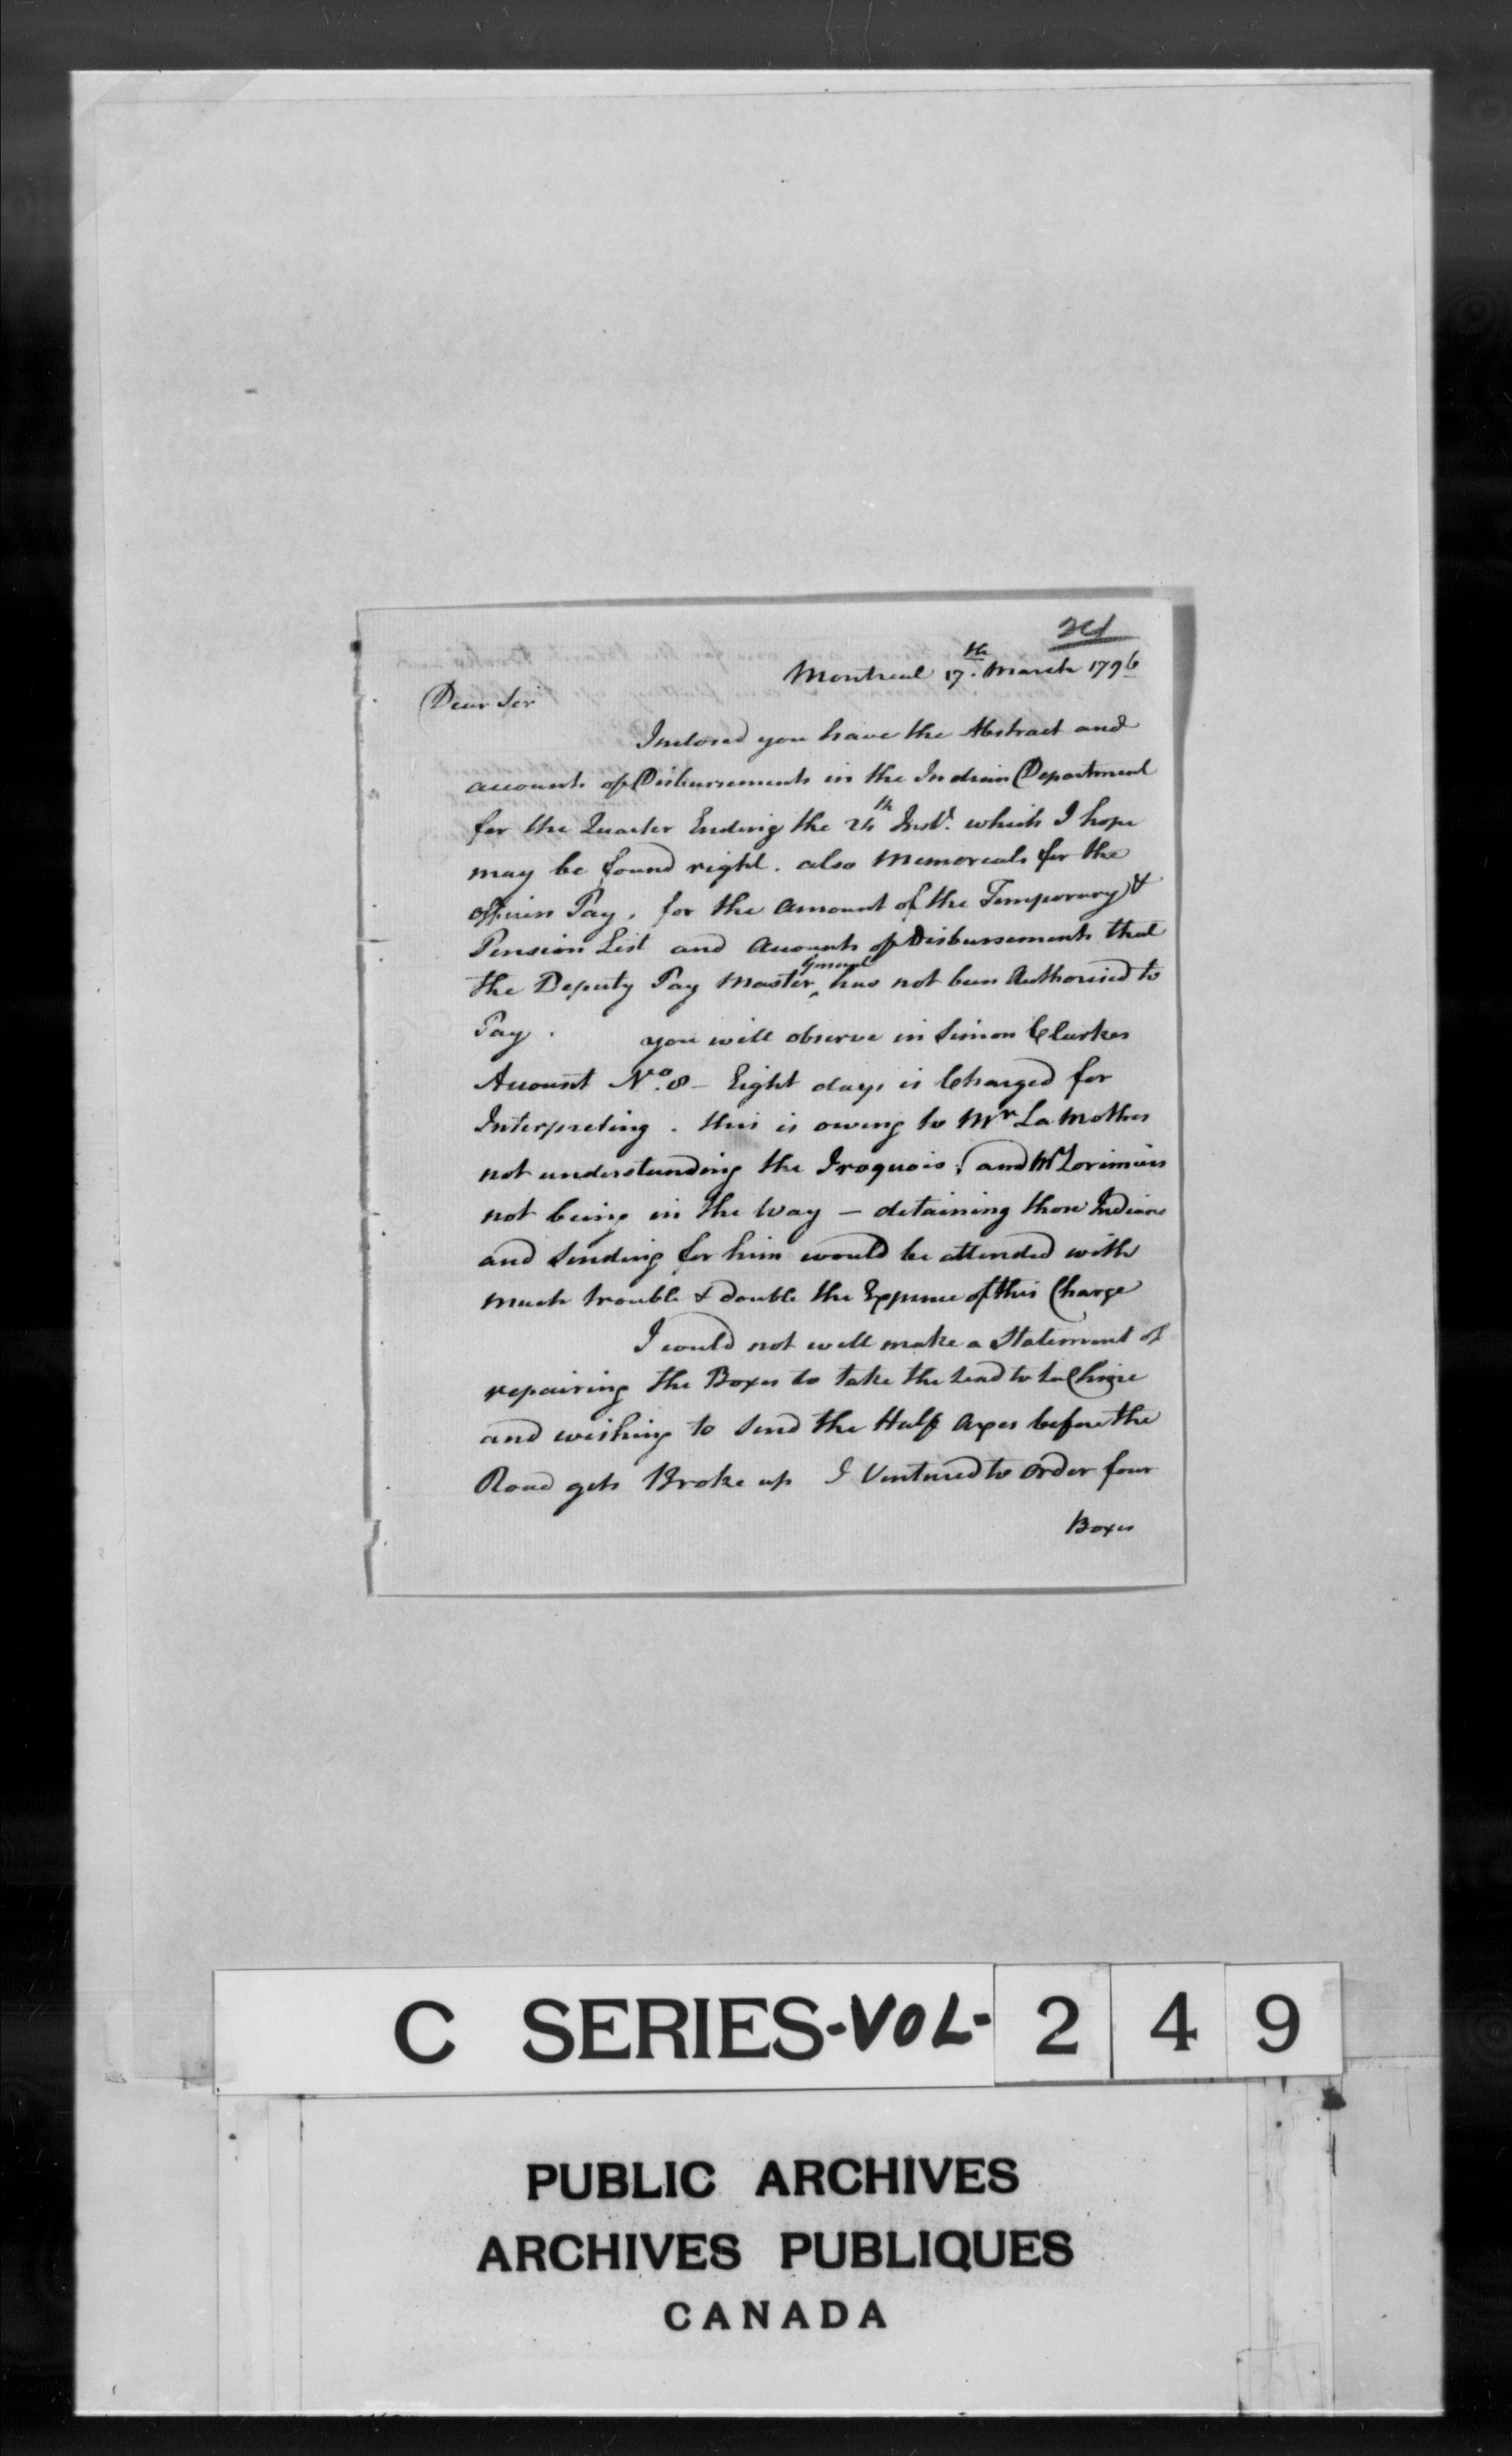 24
Montreal 17th. March 1796
Dear Sir
Inclosed you have the Abstract and
accounts of Disbursements in the Indian Department
for the Quarter Ending the 24th Inst. which I hope
may be found right. also Memorials for the
officers Pay, for the Amount of the Temporary &
Pension List and Accounts of Disbursements that
the Deputy Pay Master General has not been Authorised to
Pay. you will observe in Simon Clarkes
Account No. 8 - Eight days is Charged for
Interpreting. this is owing to Mr La Mothes
not understanding the Iroquois; and Mr Lorimiers
not being in the Way - detaining those Indians
and sending for him would be attended with
much trouble & double the Expence of this Charge
I could not well make a Statement of
repairing the Boxes to take the Lead to La Chine
and wishing to send the Half Axes before the
Road gets Broke up I Ventured to order four
Boxes
C SERIES-VOL-249
PUBLIC ARCHIVES
ARCHIVES PUBLIQUES
CANADA